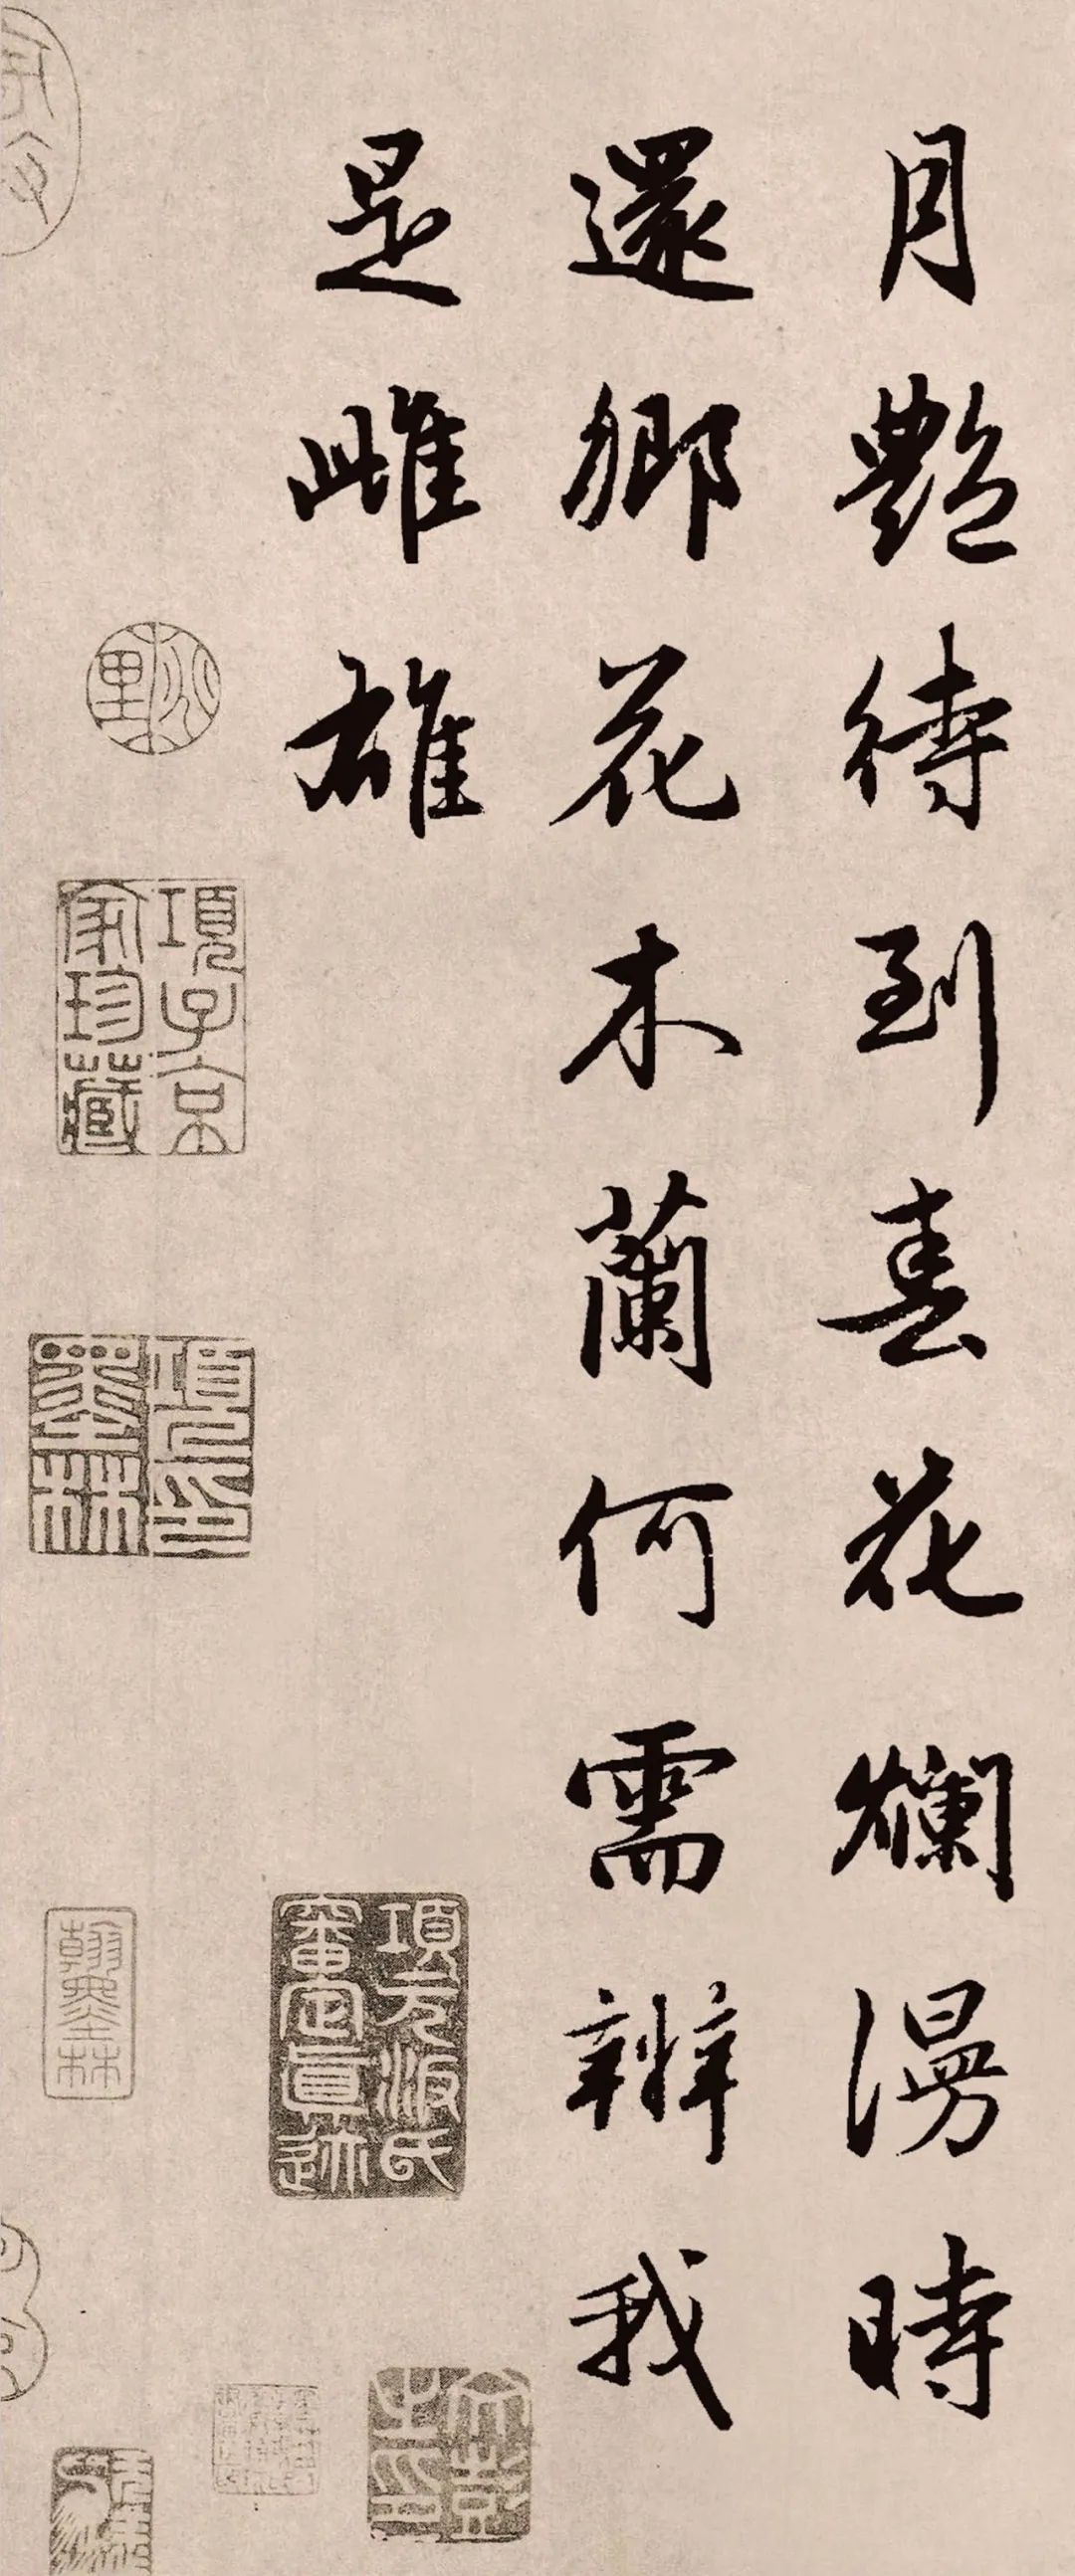 月艷待到春花爛漫時
還鄉花木蘭何需辨我
是雌雄
項子京家珍藏
項元汴氏審定真跡